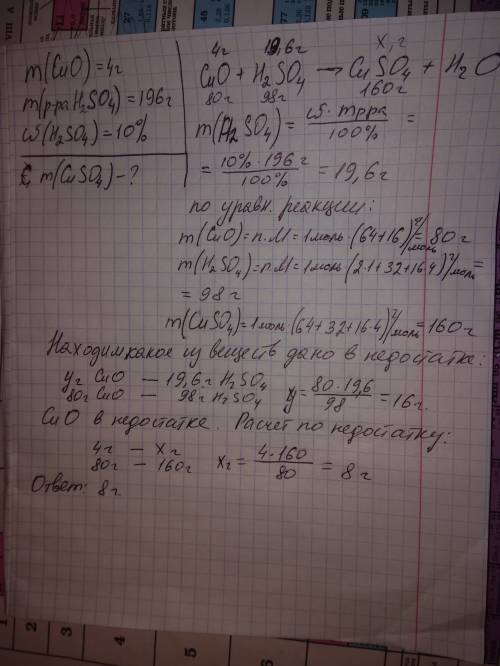 m(CuO) = 4г
m(р-ра H₂SO₄) = 196г
ω(H₂SO₄) = 10%
m(CuSO₄) - ?
4г 19,6г x, г
CuO + H₂SO₄ → CuSO₄ + H₂O
80г 98г 160г
m(H₂SO₄) = ω · mрра / 100% =
= 10% · 196г / 100% = 19,6г
по уравн. реакции:
m(CuO) = n·M = 1моль · (64+16) г/моль = 80г
m(H₂SO₄) = n·M = 1моль · (2·1+32+16·4) г/моль =
= 98г
m(CuSO₄) = 1моль · (64+32+16·4) г/моль = 160г
Находим какое из веществ дано в недостатке:
yг CuO — 19,6г H₂SO₄
80г CuO — 98г H₂SO₄ y = 80·19,6 / 98 = 16г.
CuO в недостатке. Расчет по недостатку:
4г — xг
80г — 160г xг = 4·160 / 80 = 8г
Ответ: 8г